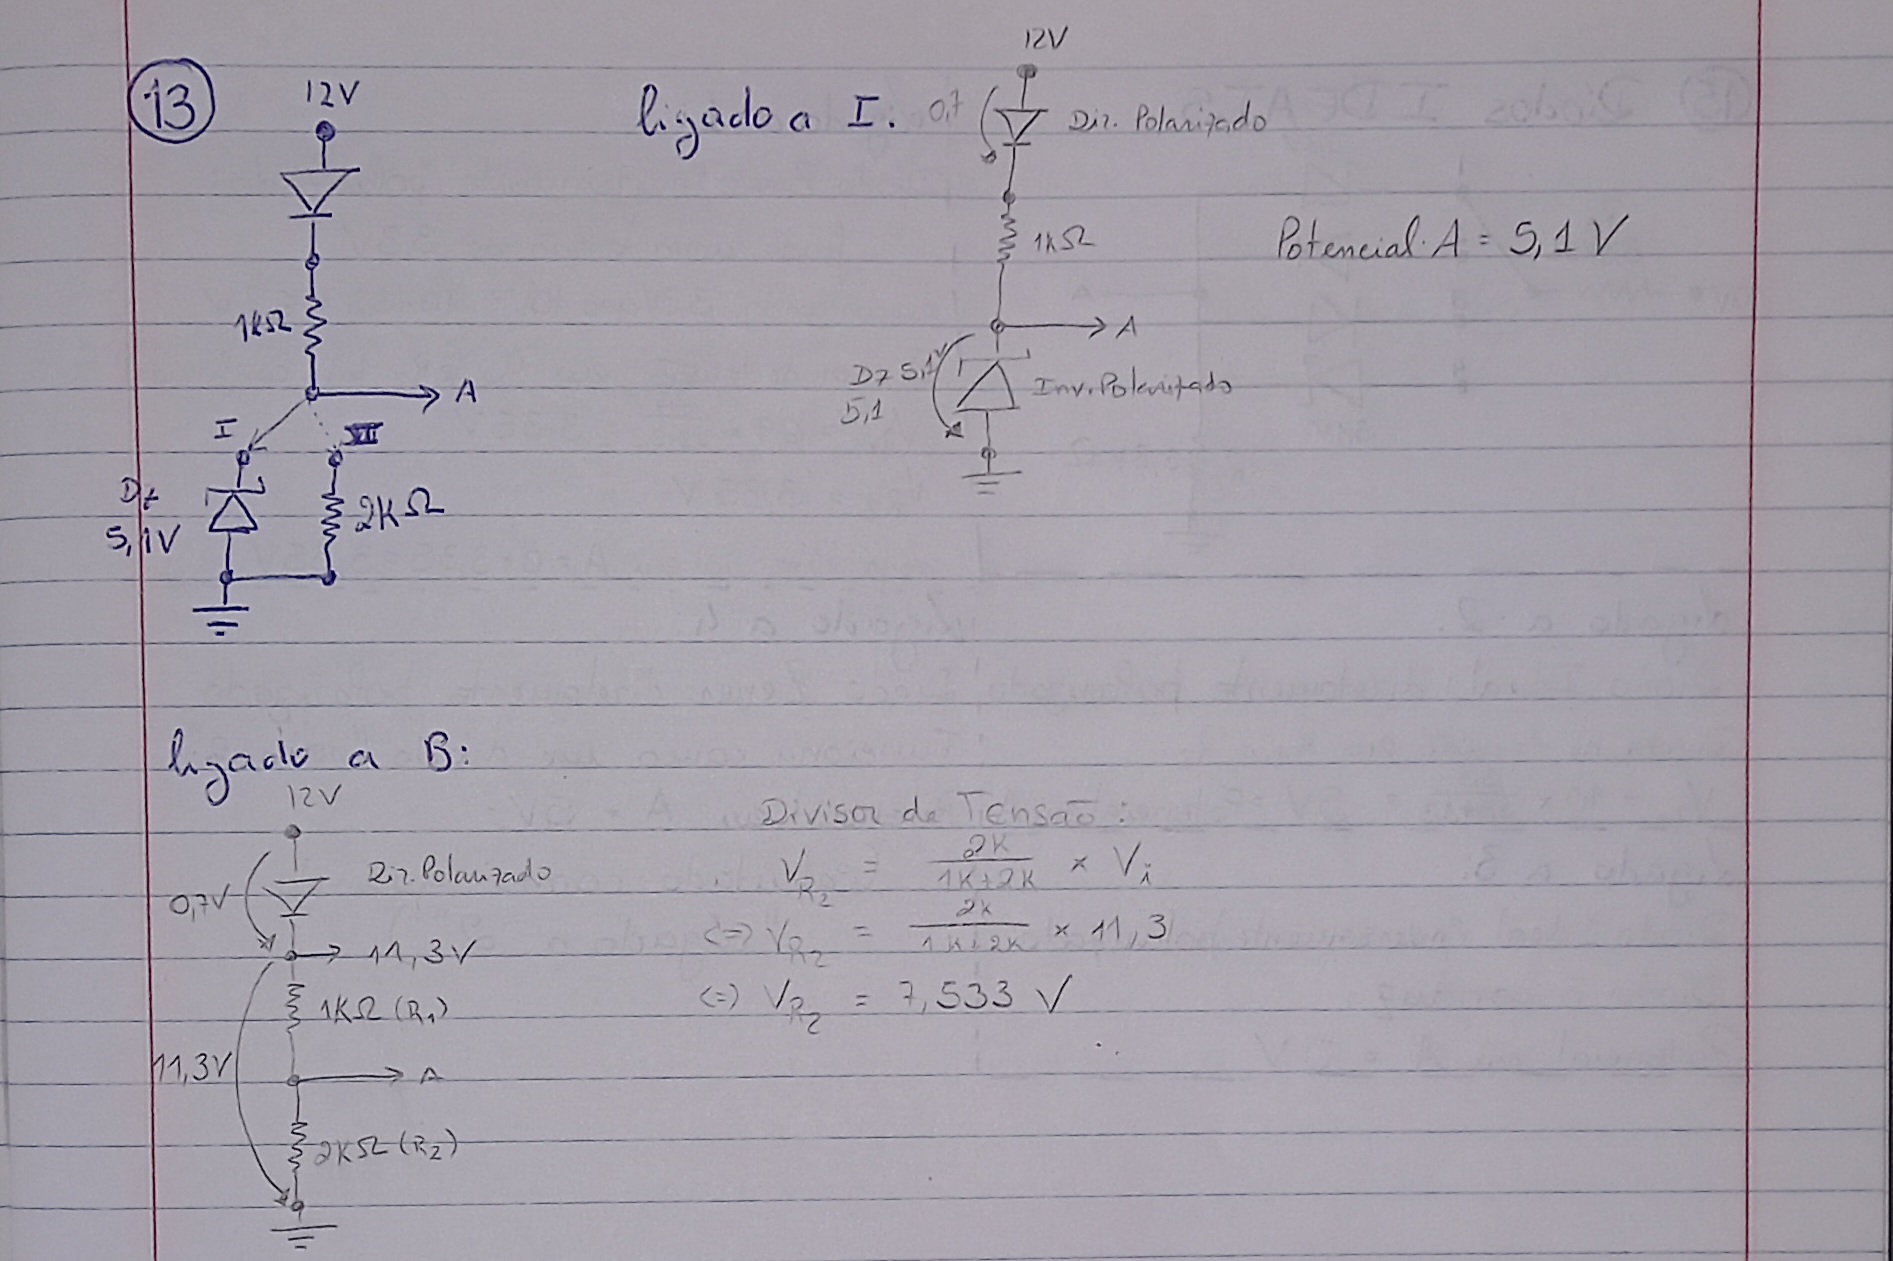 13
12V
1kΩ
A
I
II
Dz
5,1V
2kΩ
ligado a I.
12V
0,7
Dir. Polarizado
1kΩ
A
Dz 5,1V
5,1
Inv. Polarizado
Potencial A = 5,1 V
ligado a B:
12V
0,7V
Dir. Polarizado
11,3V
1KΩ (R1)
11,3V
A
2KΩ (R2)
Divisor de Tensão:
V_R2 = 2K / 1K+2K × Vi
<=> V_R2 = 2K / 1K+2K × 11,3
<=> V_R2 = 7,533 V